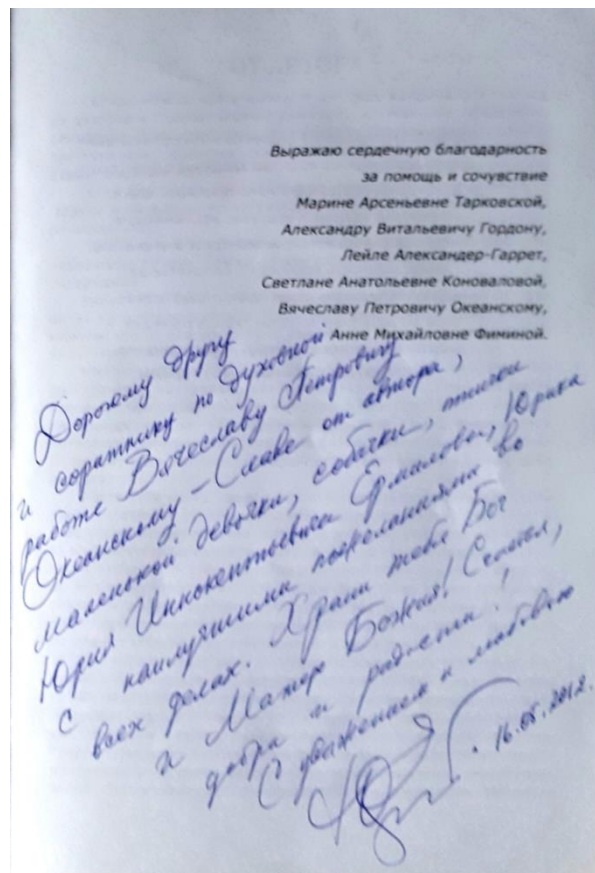 Выражаю сердечную благодарность
за помощь и сочувствие
Марине Арсеньевне Тарковской,
Александру Витальевичу Гордону,
Лейле Александер-Гаррет,
Светлане Анатольевне Коноваловой,
Вячеславу Петровичу Океанскому,
Анне Михайловне Фиминой.
Дорогому другу
и соратнику по духовной
работе Вячеславу Петровичу
Океанскому – Славе от автора,
маленькой девочки, собачки, птички
Юрия Иннокентьевича Ермалова, Юрика
с наилучшими пожеланиями во
всех делах. Храни тебя Бог
и Матерь Божия! Счастья,
добра и радости!
С уважением и любовью
16.05.2012.